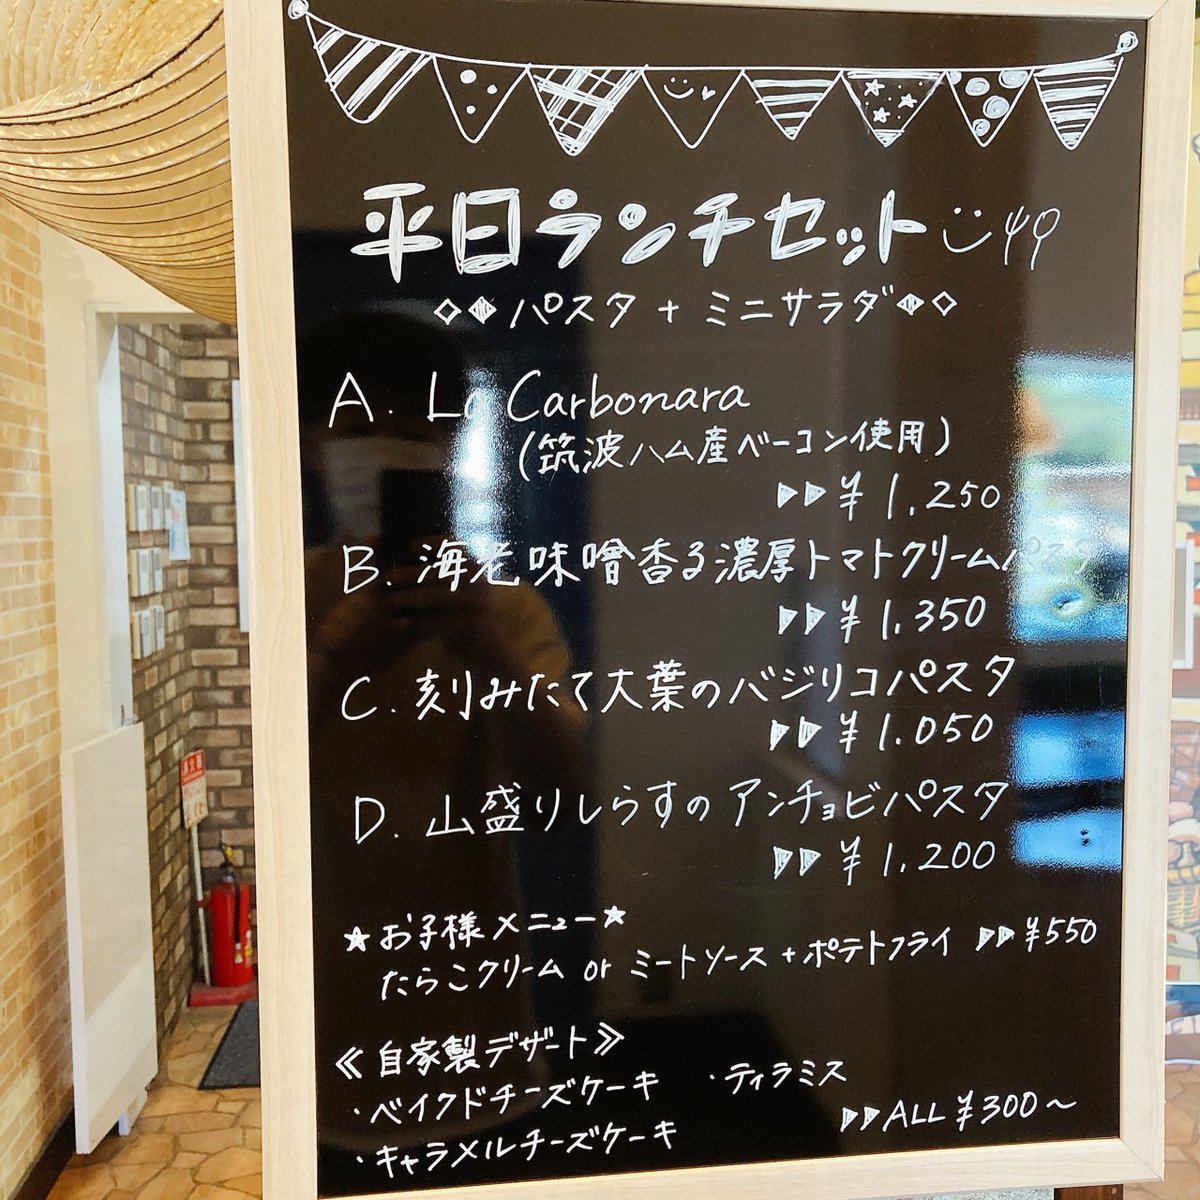 平日ランチセット
パスタ + ミニサラダ
A. La Carbonara
(筑波ハム産ベーコン使用)
¥1,250
B. 海老味噌香る濃厚トマトクリームパスタ
¥1,350
C. 刻みたて大葉のバジリコパスタ
¥1.050
D. 山盛りしらすのアンチョビパスタ
¥1,200
★お子様メニュー★
たらこクリーム or ミートソース + ポテトフライ ¥550
≪自家製デザート≫
・ベイクドチーズケーキ ・ティラミス
・キャラメルチーズケーキ ALL ¥300～